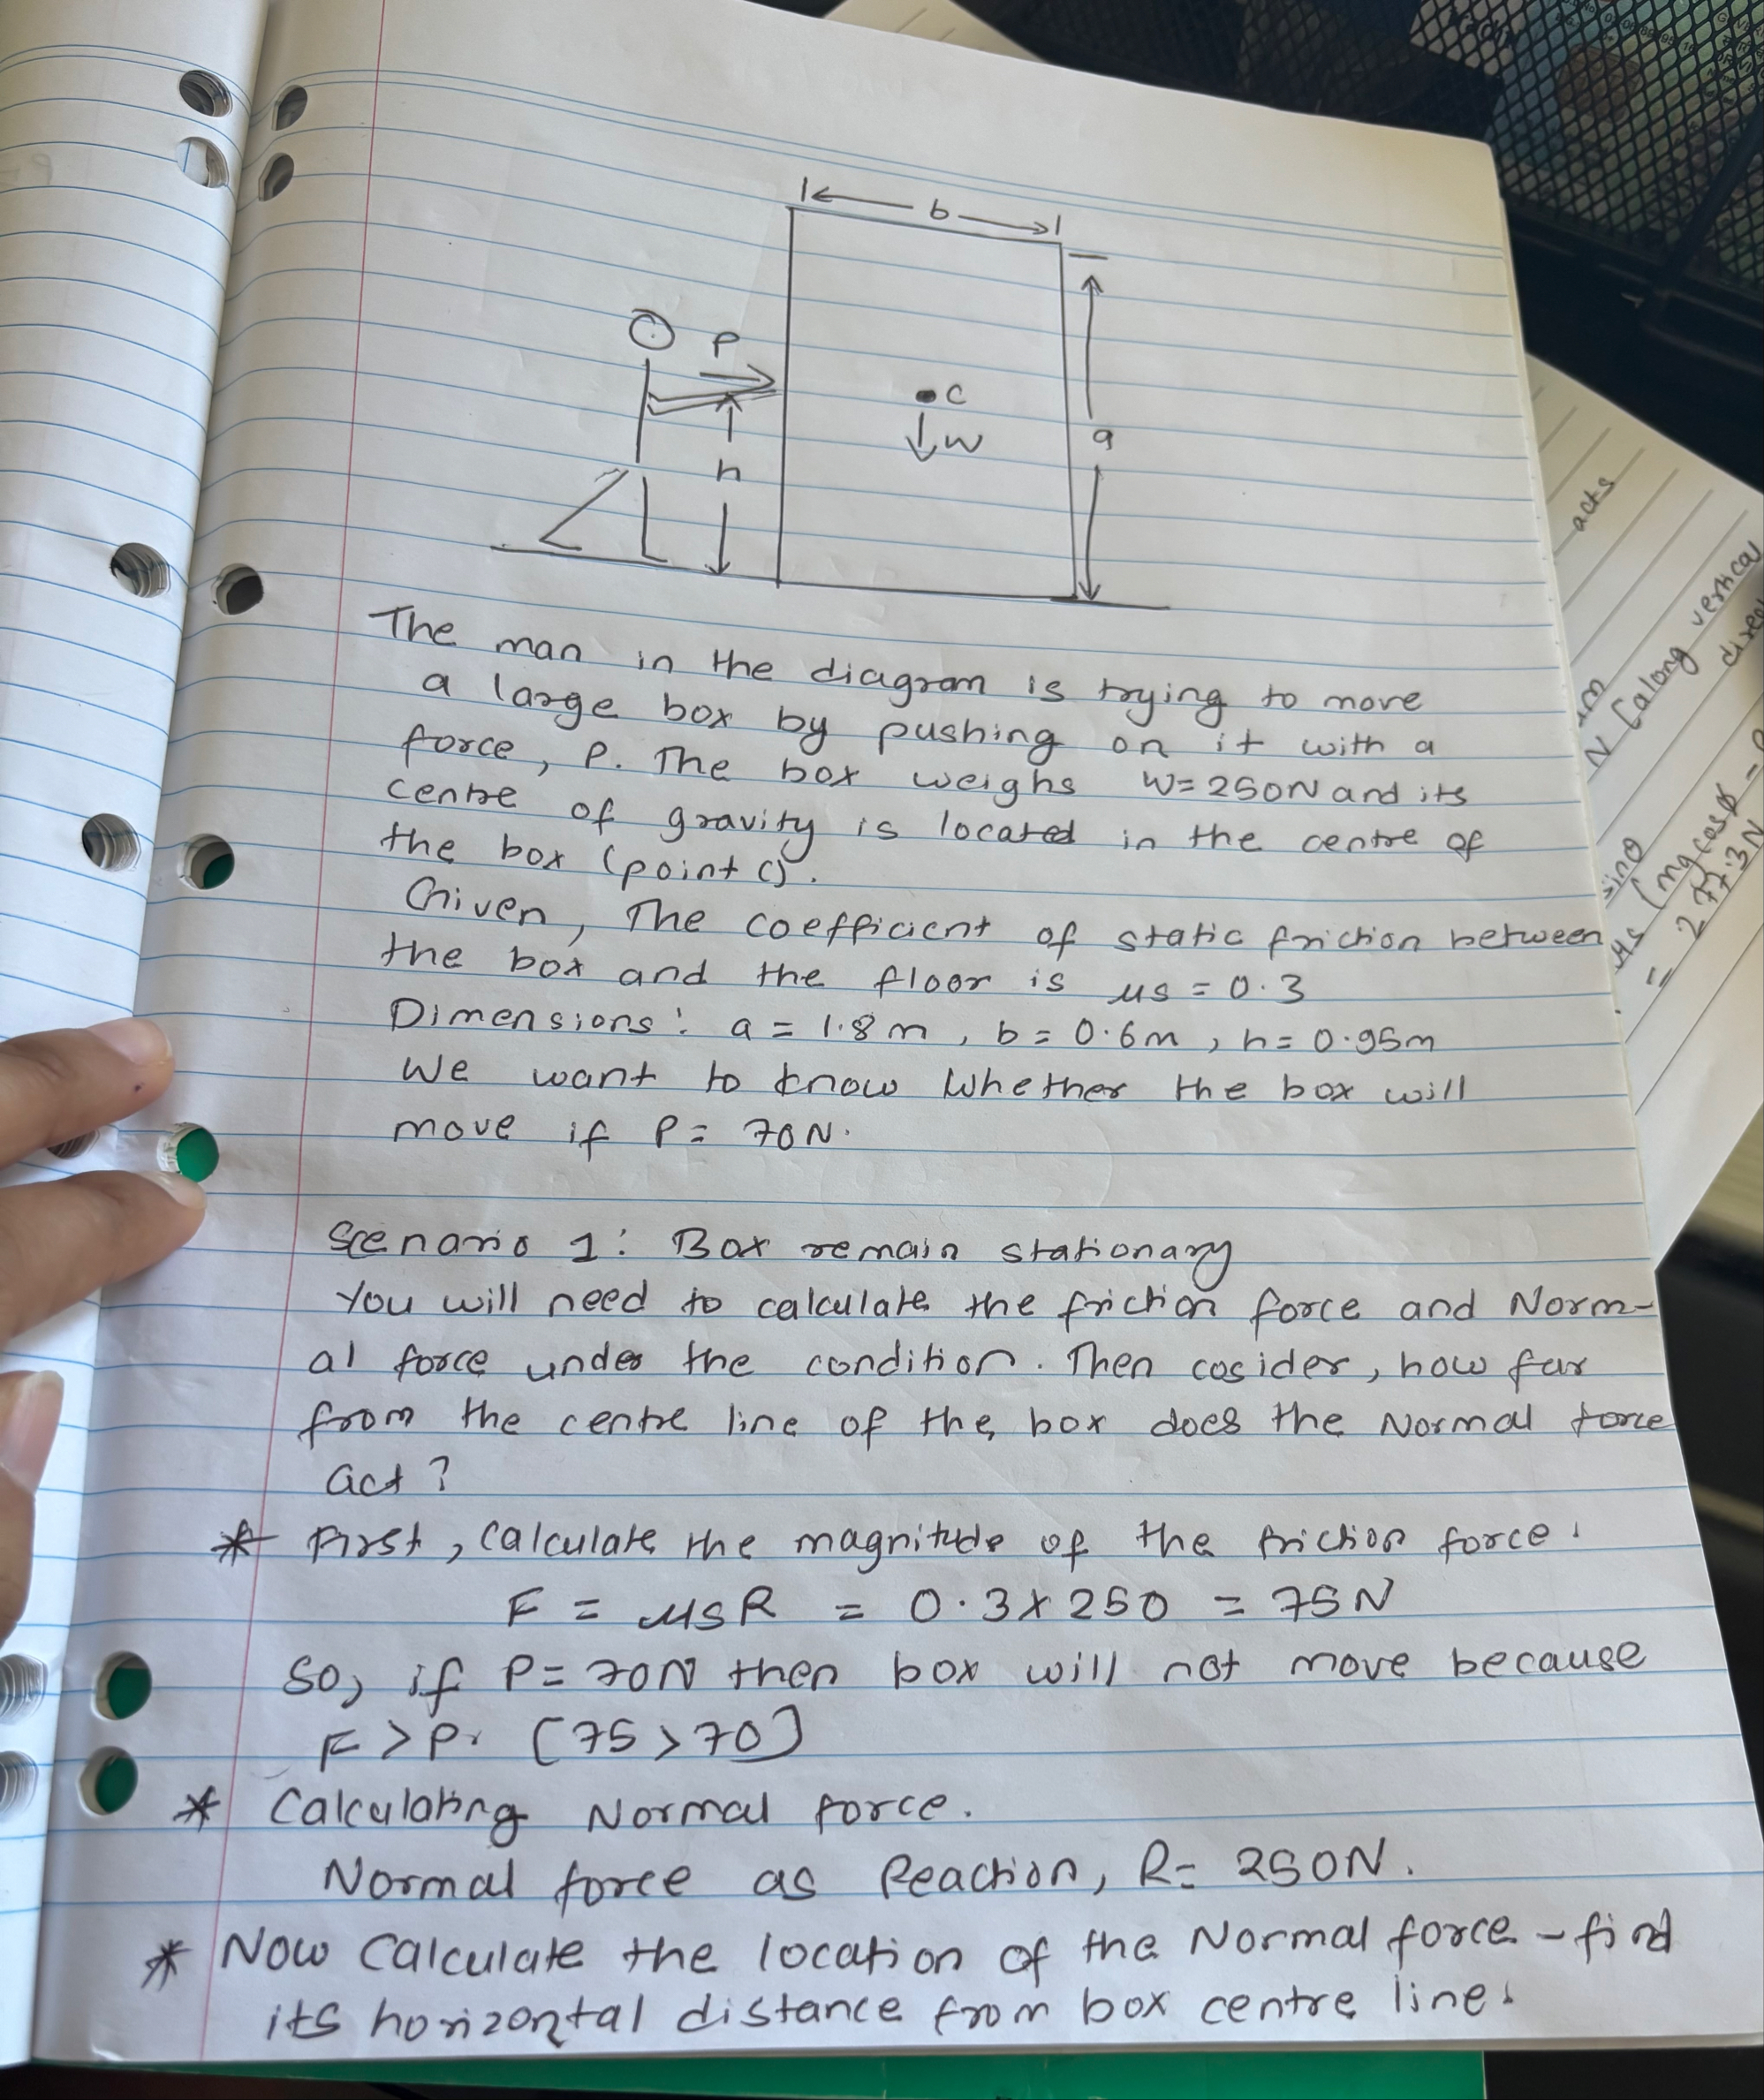 b
P
C
W
a
h
The man in the diagram is trying to move
a large box by pushing on it with a
force, P. The box weighs W=250N and its
centre of gravity is located in the centre of
the box (point c).
Given, The coefficient of static friction between
the box and the floor is μs = 0.3
Dimensions: a = 1.8m, b = 0.6m, h = 0.95m
We want to know Whether the box will
move if P = 70N.
Scenario 1: Box remain stationary
You will need to calculate the friction force and Norm-
al force under the condition. Then cosider, how far
from the centre line of the box does the Normal force
act?
* First, calculate the magnitude of the friction force.
F = μsR = 0.3 x 250 = 75N
So, if P = 70N then box will not move because
F > P. [75 > 70]
* Calculating Normal force.
Normal force as Reaction, R = 250N.
* Now Calculate the location of the Normal force - find
its horizontal distance from box centre line.
acts
N [along vertical
sinθ
μs (mg cosθ
= 277.3N